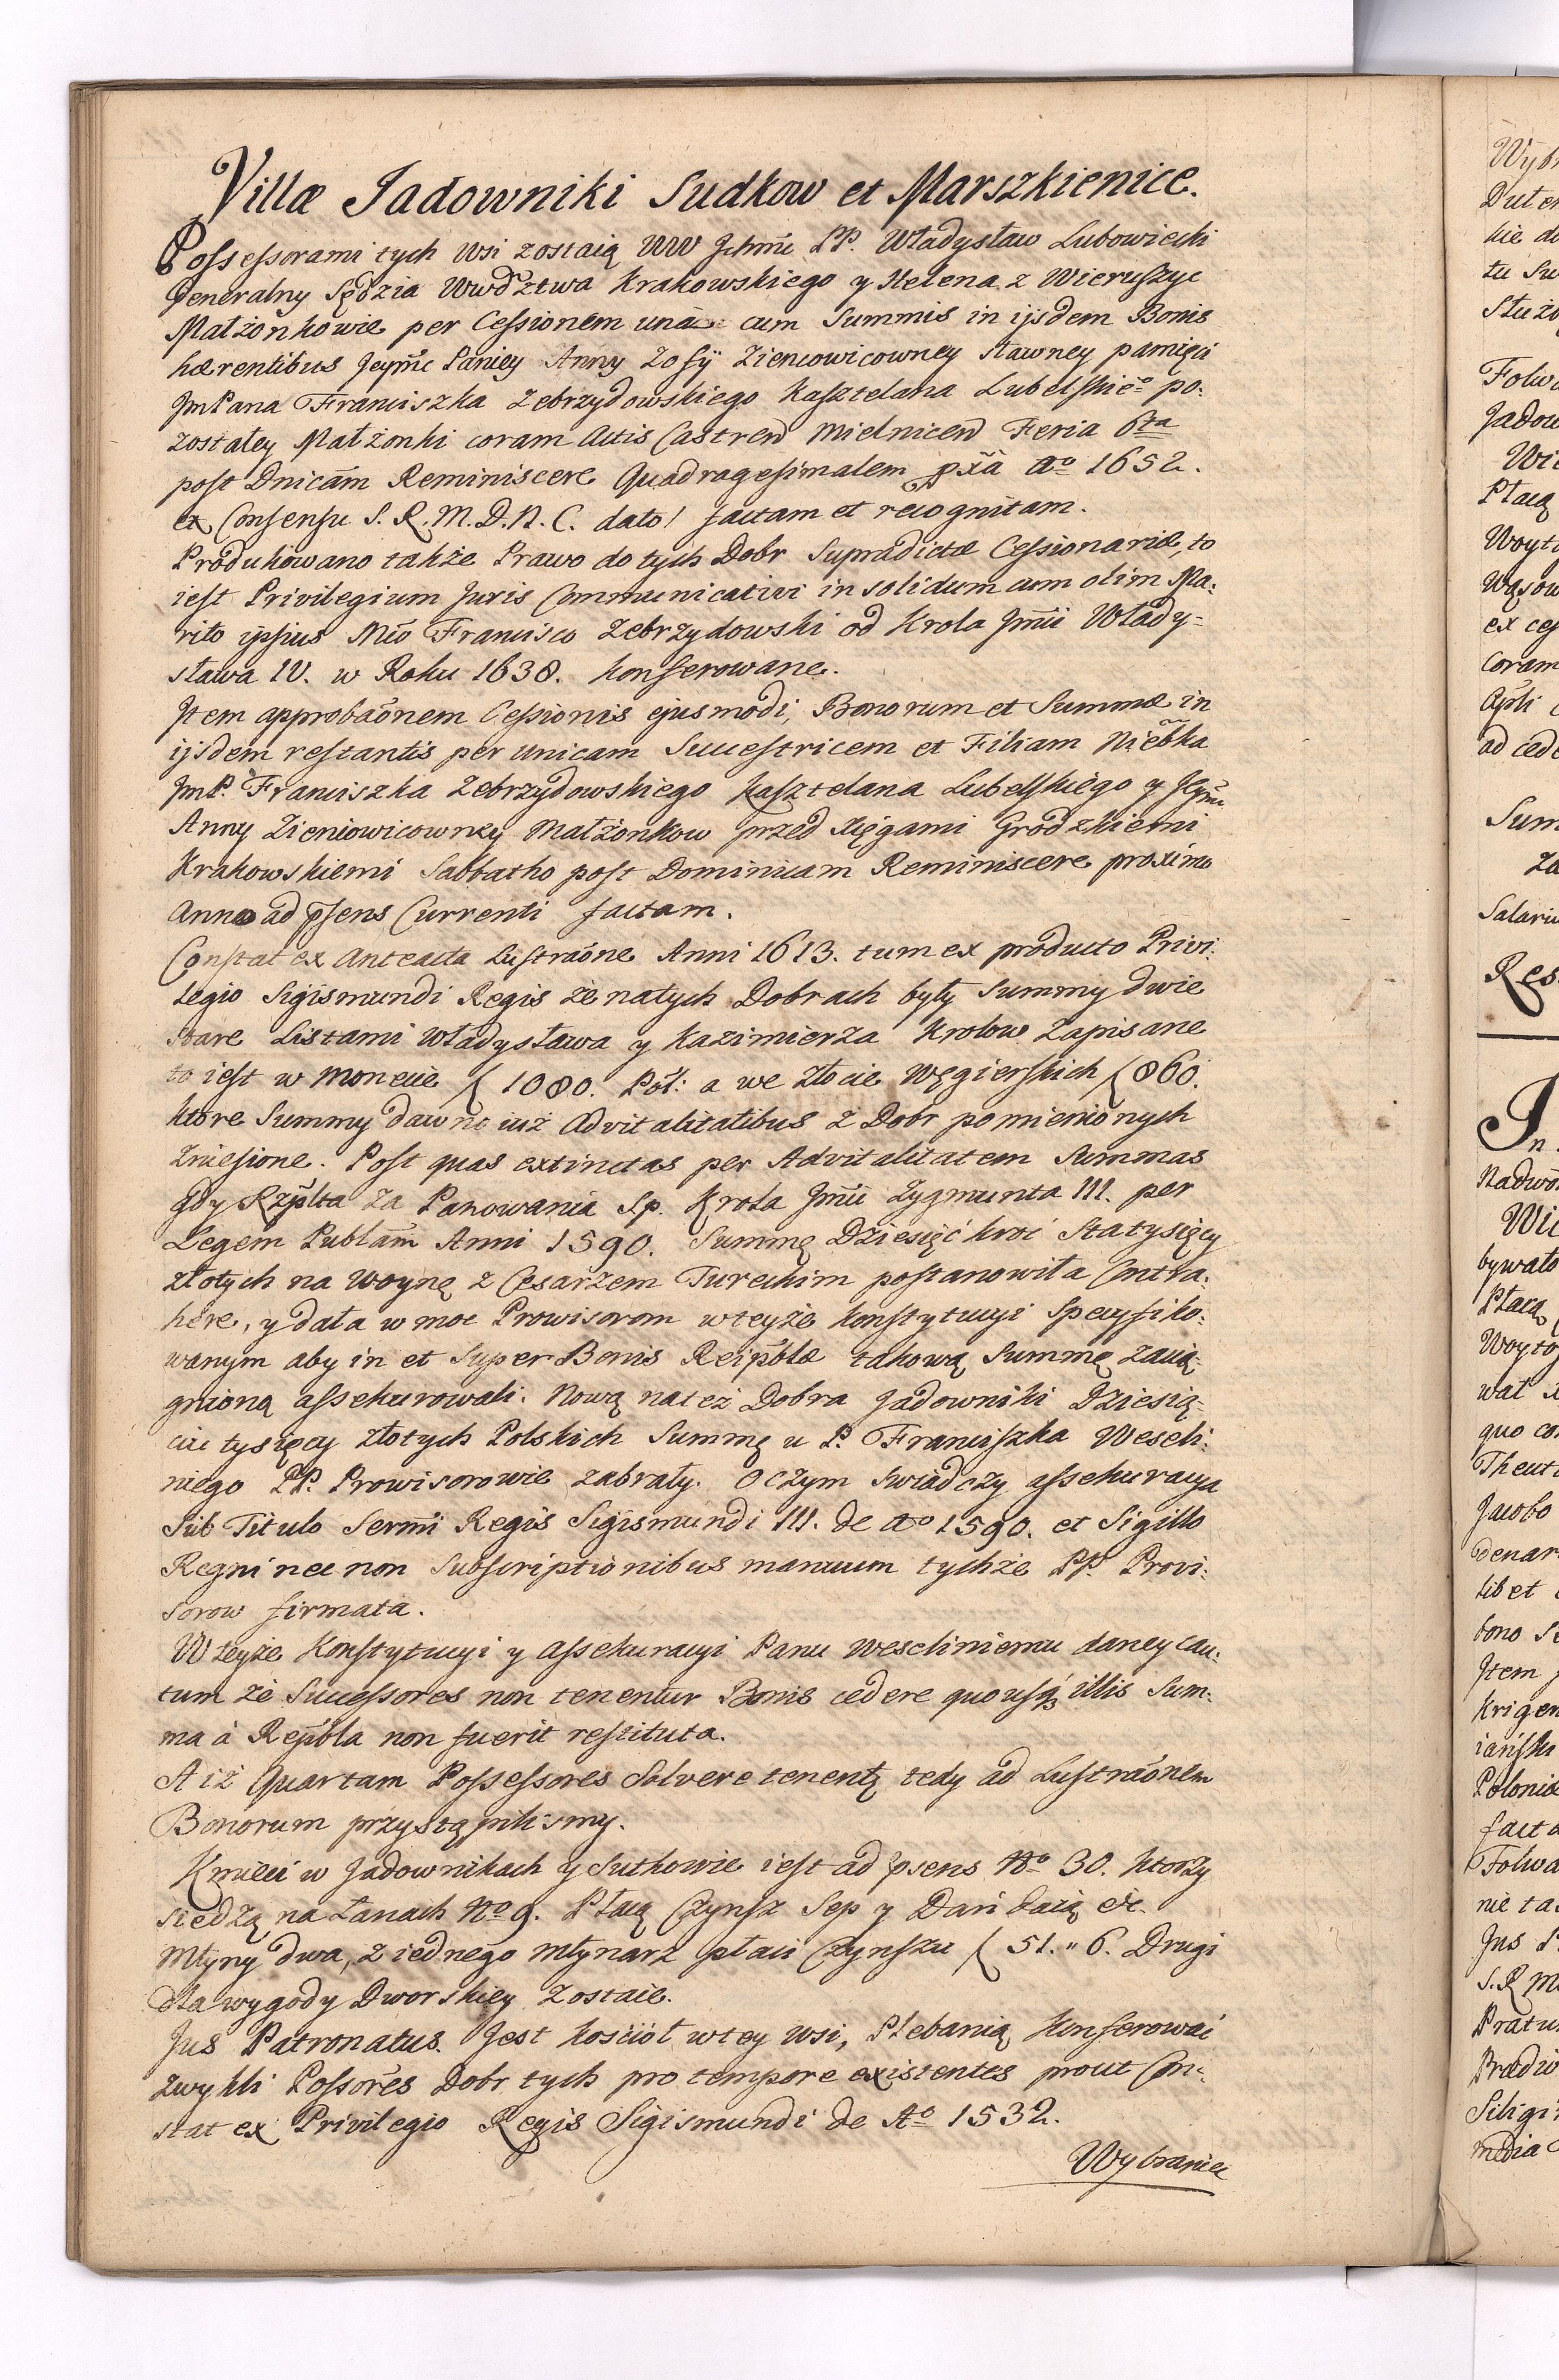 Villæ Jadowniki Sudkow et Marszkienice.
Possessorami tych Wsi zostaią WW Jchmć PP. Władysław Lubowiecki
Generalny Sędzia Wwdztwa Krakowskiego y Helena z Wieruszyc
Małżonkowie per Cessionem una cum Summis in ijsdem Bonis
hærentibus Jeymć Paniey Anny Zofÿ Zieniowicowney sławney pamięci
JmPana Franciszka Zebrzydowskiego Kasztelana Lubelskiego po:
zostałey Małżonki coram Actis Castren Mielnicen Feria 6ta
post Dnicam Reminiscere Quadragesimalem pxa Ao 1652.
ex Consensu S. R. M. D. N. C. dato factam et recognitam.
Produkowano także Prawo do tych Dobr Supradictæ Cessionariæ, to
iest Privilegium Juris Communicativi in solidum cum olim Ma:
rito ipsius Mco Francisco Zebrzydowski od Krola Jmci Włady=
sława IV. w Roku 1638. konferowane.
Jtem approbaonem Cessionis ejusmodi, Bonorum et Summæ in
ijsdem restantis per unicam Successtricem et Filiam Niebka
JmP. Franciszka Zebrzydowskiego Kasztelana Lubelskiego y Jeymć
Anny Zieniowicowney Małżonkow przed Xięgami Grodzkiemi
Krakowskiemi Sabbatho post Dominicam Reminiscere proximo
Anno ad psens Currenti factam.
Constat ex Anteacta Lustraone Anni 1613. tum ex producto Privi:
legio Sigismundi Regis że na tych Dobrach były Summy dwie
stare Listami Władysława y Kazimierza Krolow Zapisane
to iest w monecie ƒ 1080. Pol: a we złocie Węgierskich ƒ 860.
ktore Summy dawno iuż Advitalitatibus z Dobr pomienionych
zniesione. Post quas extinctas per Advitalitatem Summas
gdy Rzplta za Panowania Sp. Krola Jmci Zygmunta III. per
Legem Publam Anni 1590. Summę Dziesięć kroć Sta tysięcy
złotych na Woynę z Cesarzem Tureckim postanowiła Contra:
here, y dała w moc Prowisorom w teyże Konstytucyi Specyfiko:
wanym aby in et super Bonis Reipblæ takową Summę zacią:
gnioną assekurowali. Nową na też Dobra Jadowniki Dziesią=
ciu tysięcy złotych Polskich Summę u P. Franciszka Wescli:
niego PP. Prowisorowie zabrały. O czym świadczy assekuracya
Sub Titulo Sermi Regis Sigismundi III. de Ao 1590. et Sigillo
Regni nec non Subscriptionibus manuum tychże PP. Provi:
sorow firmata.
W teyże Konstytucyi y assekuracyi Panu Wescliniemu daney cau:
tum że Successores non tenentur Bonis cedere quousq illis Sum:
ma à Repbla non fuerit restituta.
A iż Quartam Possessores Solvere tenentq tedy ad Lustraonem
Bonorum przystąpiliśmy.
Kmieci w Jadownikach y Sutkowie iest ad psens No 30. ktorzy
siedzą na Łanach No 9. Płacą Czynsz Sep y Dań daią etc.
Młyny dwa, z iednego młynarz płaci Czynszu ƒ 51. " 6. Drugi
dla wygody Dworskiey zostaie.
Jus Patronatus. Jest kościoł w tey Wsi, Plebanią konferować
zwykli Possores Dobr tych pro tempore existentes prout Con=
stat ex Privilegio Regis Sigismundi de Ao 1532.
Wybraniec